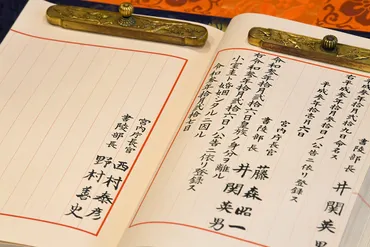 井関英男
平成参年拾月弐拾九日命名ス
右平成参年拾壱月六日公告ニ依リ登録ス
宮内庁長官 藤森昭一
書陵部長 井関英男
令和参年拾月弐拾六日
小室圭ト婚姻シタルニ因リ皇族ノ身分ヲ離ル
右令和参年拾月弐拾六日公告ニ依リ登録ス
令和参年拾月弐拾七日
宮内庁長官 西村泰彦
書陵部長 野村善史